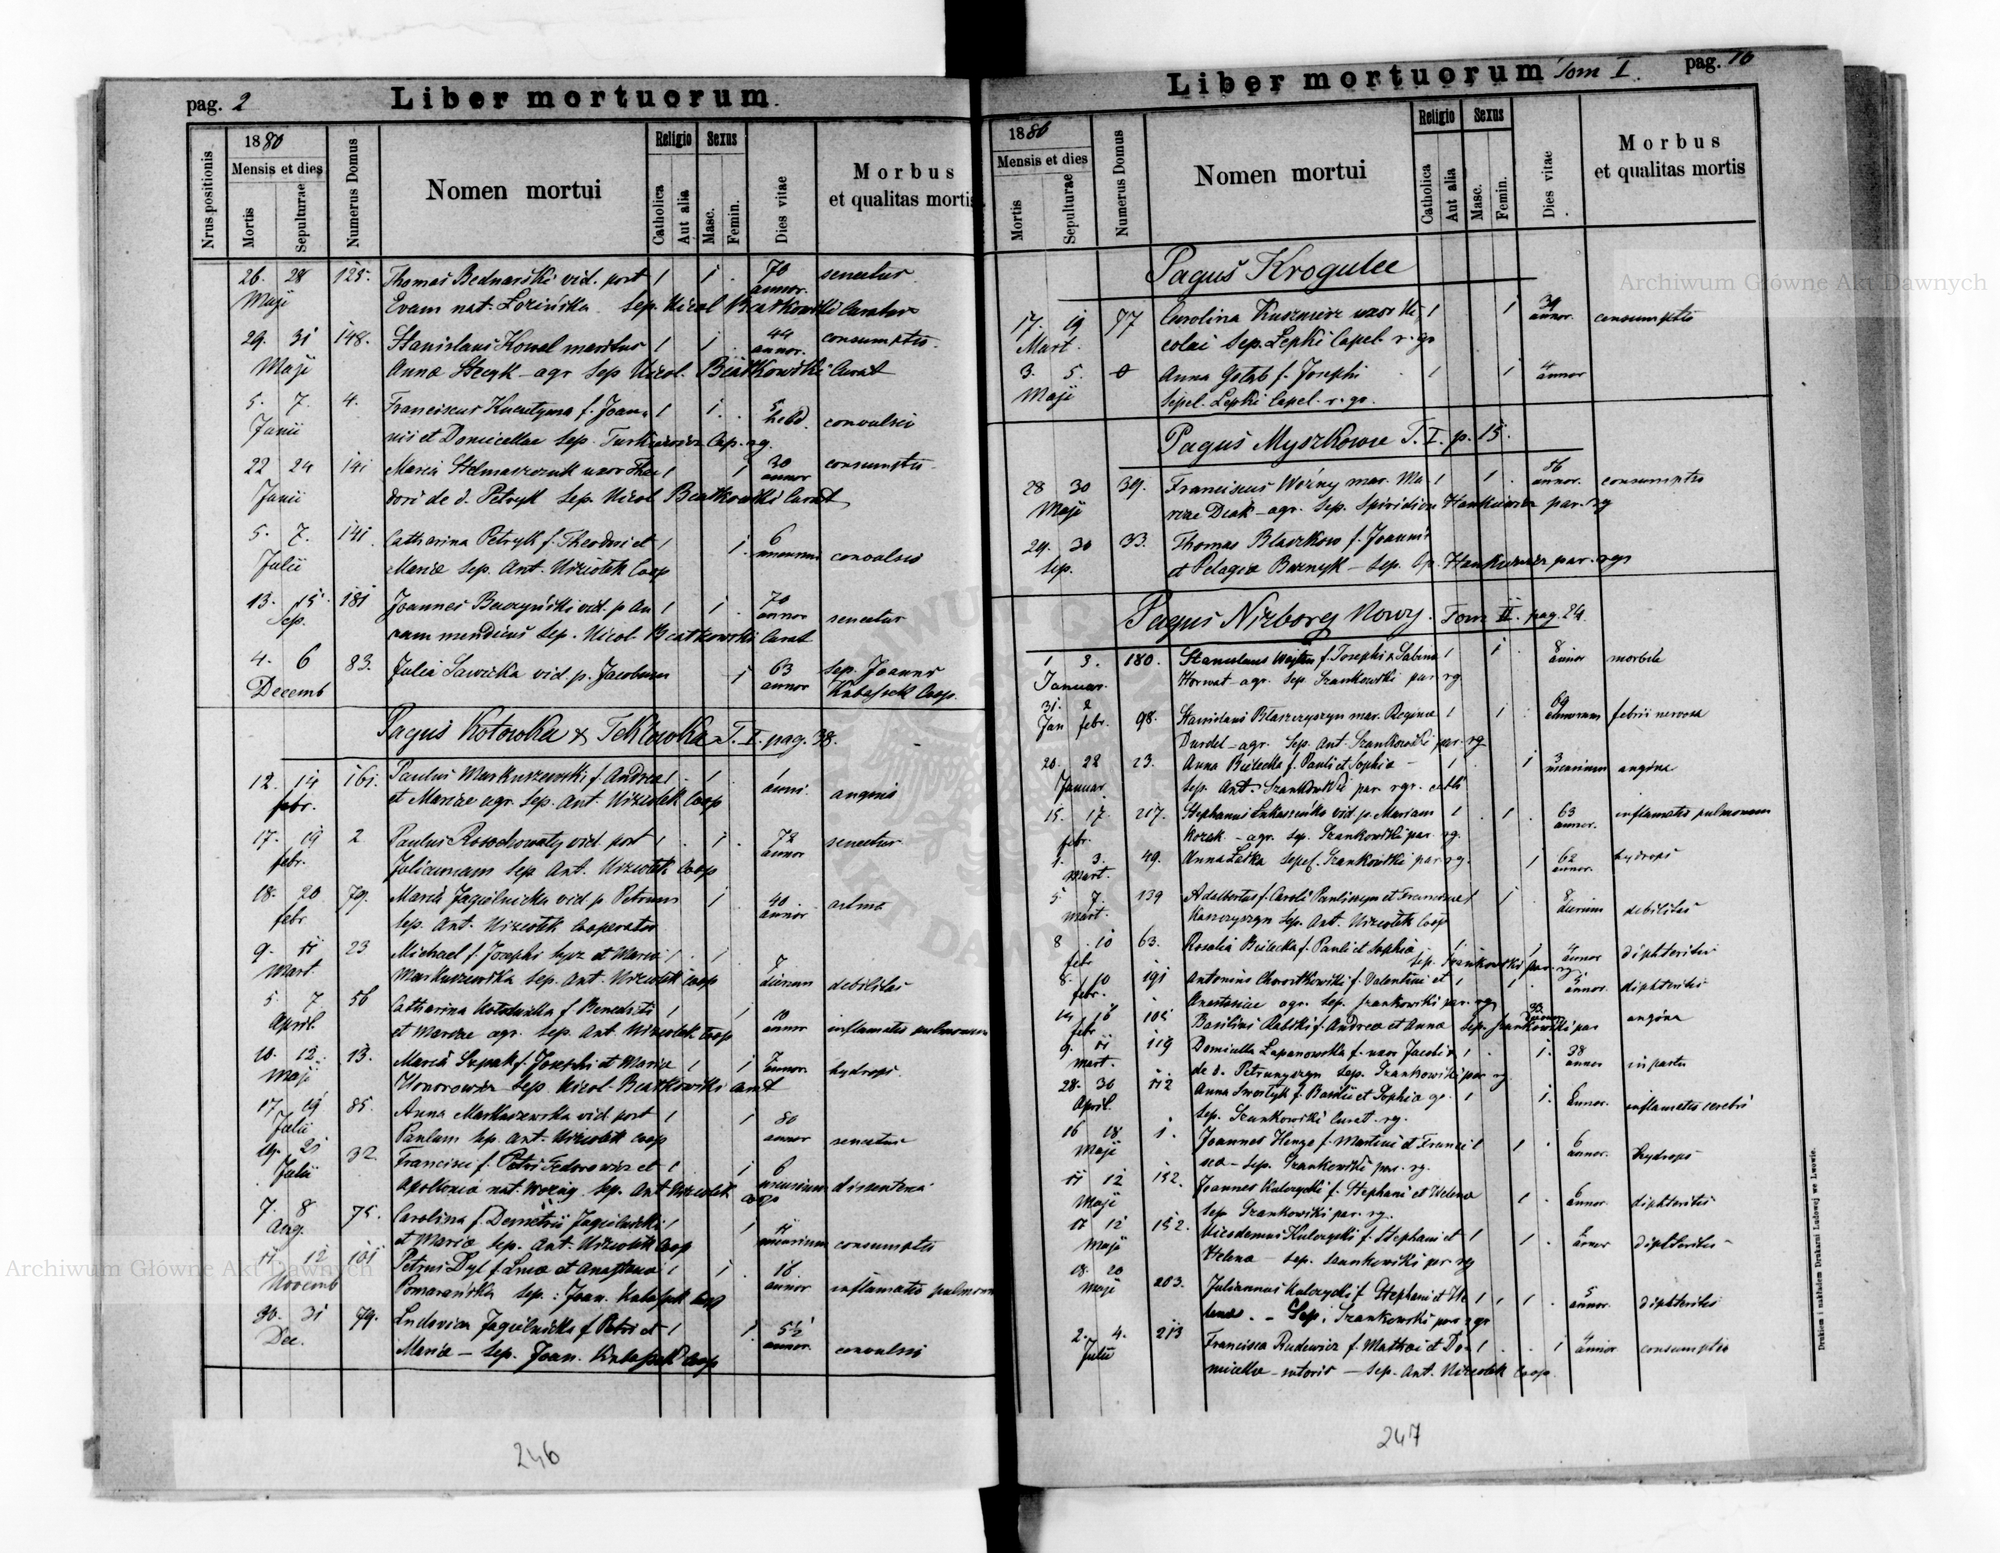 pag. 2
Liber mortuorum.
Nrus positionis
1880
Mensis et dies
Mortis
Sepulturae
Numerus Domus
Nomen mortui
Religio
Catholica
Aut alia
Sexus
Masc.
Femin.
Dies vitae
Morbus
et qualitas mortis
26. 28 125. Thomas Bednarski vid. post 1 1 70 senectus
Maji Evam nat. Łozińska Sep. Nicol Białkowski Curatus
annor.
29. 31 148. Stanislaus Kowal maritus 1 1 44 consumptio
Maji Anna Steyk - agr Sep Nicol. Białkowski Curat
annor.
5. 7. 4. Franciscus f. Joan- 1 1 5 hebd. convulsio
Junii nis et Domicellae Sep. Turkiewicz Cap. rg
22 24 141 Maria Stelmaszczuk uxor Theo 1 1 30 consumptio
Junii dori de d. Petryk Sep. Nicol Białkowski Curat
annor
5. 7. 141. Catharina Petryk f. Theodori et 1 1. 6 convulsio
Julii Mariae Sep. Ant. Uziembł Coop
mensium
13. 15. 181 Joannes Buczyński vid. p An 1 1 70 senectus
Sep. nam mendicus Sep. Nicol. Białkowski Curat
annor
4. 6 83. Julia Sawicka vid. p. Jacobum 1 63 sep. Joannes
Decemb annor Coop.
Pagus Kotowka & Teklowka T. I. pag. 38.
12. 14 161. Paulus Markuszewski f. Andrea 1 1 1 anni. angina
febr. et Mariae agr. Sep. Ant. Coop
17. 19 2 Paulus Rosochowaty vid. post 1 1 72 senectus
febr. Julianam Sep Ant. Coop
annor
18. 20 79. Maria Jagielnicka vid. p Petrum 40 astma
febr. Sep. Ant. Cooperator
annor
9. 11 23 Michael f. Josephi et Maria 1 1 7 dierum debilitas
Mart. Markuszewska Sep. Ant. Coop
5. 7 56 Catharina f Benedicti 1 1 10 inflamatio pulmonum
April. et Mariae agr. Sep. Ant. Coop
annor
10. 12. 13. Maria Szpak f. Josephi et Maria 1 1 7 hydrops
Maji Honorowicz Sep. Nicol. Białkowski Curat
annor.
17 19 85. Anna Markuszewska vid. post 1 1 80 senectus
Julii Paulum Sep. Ant. Coop
annor
19. 21 32. Francisci f. Petri Fedorowicz et 1 1 6 disenteria
Julii Apollonia nat. Woźny Sep. Ant Coop
mensium
7. 8 75. Carolina f. Demetrii Jagielnicki 1 1 11 consumptio
Aug. et Maria Sep. Ant. Coop
mensium
11 12 101 Petrus Dyl f. Lucae et Anastasia 1 1 18 inflamatio pulmonum
Novemb Pomarańska Sep: Joan. Coop
annor
30. 31 79. Ludovica Jagielnicka f Petri et 1 1. 5½ convulsio
Dec. Maria - Sep. Joan. Coop
annor.
246
Liber mortuorum Tom I. pag. 16
1880
Mensis et dies
Mortis
Sepulturae
Numerus Domus
Nomen mortui
Religio
Catholica
Aut alia
Sexus
Masc.
Femin.
Dies vitae
Morbus
et qualitas mortis
Pagus Krogulec
17. 19 77 Carolina Kusznierz uxor Ni- 1 1 39 consumptio
Mart. colai Sep. Lepki Capel. r. gr
annor.
3. 5. 0 Anna Gołąb f. Josephi 1 1 4 annor
Maji Sepel. Lepki Capel. r. gr.
Pagus Myszkowce T. I. p. 15.
28 30 39. Franciscus Woźny mar. Ma- 1 1 56 consumptio
Maji riae Diak - agr. Sep. Spiridion Hankiewicz par. rg
annor.
29. 30 33. Thomas Blaszkow f. Joannis
Sep. et Pelagia - Sep. Sp. Hankiewicz par. rgr
Pagus Niżborg Nowy. Tom II. pag. 24.
1 3. 180. Stanislaus f. Josephi & Sabina 1 1 8 annor morbili
Januar. Horwat - agr. Sep Szankowski par rg
31. 2 98. Stanislaus Błaszczyszyn mar. Regina 1 1 69 annorum febris nervosa
Jan febr. Durdel - agr. Sep. Ant. Szankowski par. rg
20. 22 23. Anna Bielecka f. Pauli et Sophia - 1 1 3 mensium angina
Januar. Sep. Ant. Szankowski par. rgr.
15. 17. 217. Stephanus vid. p. Mariam 1 1 63 annor. inflamatio pulmonum
febr. Kozak - agr. Sep. Szankowski par. rg.
1. 3. 49. Anna Sepel. Szankowski par rg. 1 62 annor. hydrops
Mart.
5 7. 139 Adalbertus f. Caroli et Francisca 1 1 8 dierum debilitas
Mart. Kaszczyszyn Sep. Ant. Coop
8 10 63. Rosalia Bielecka f. Pauli et Sophia 1 1 4 annor diphteritis
febr Sep. Szankowski par. rg.
8. 10 191 Antonius Chorostkowski f. Valentini et 1 1 2 annor. diphteritis
febr. Anastasiae agr. Sep. Szankowski par. rgr
14 16 105 Basilius f. Andrea et Anna Sep. Szankowski par angina
febr
9. 11 119 Domicella Łapanowska f. uxor Jacobi 1 1. 38 annor in partu
Mart. de d. Petrunyszyn Sep. Szankowski par rg
28. 30 112 Anna f. Basilii et Sophia gr. 1 1. 6 annor. inflamatio cerebri
April. Sep. Szankowski Curat. rg.
16 18 1. Joannes Henze f. Martini et Franci 1 1 6 annor. hydrops
Maji sca - Sep. Szankowski par. rg.
11 12 152. Joannes Kulczycki f. Stephani et Helena 1 6 annor. diphteritis
Maji Sep. Szankowski par. rg.
11 12 152. Nicodemus Kulczycki f. Stephani et 1 1 2 annor diphteritis
Maji Helena - Sep. Szankowski par rg
18. 20 203. Juliannus Kulczycki f Stephani et He 1 1 1 5 annor. diphteritis
Maji lenae - Sep. Szankowski par rgr
2. 4. 213 Francisca Rudewicz f. Mathaei et Do- 1 1 4 annor consumptio
Julii micella - sutoris - Sep. Ant. Coop.
Drukiem i nakładem Drukarni Ludowej we Lwowie.
247
Archiwum Główne Akt Dawnych
Archiwum Główne Akt Dawnych